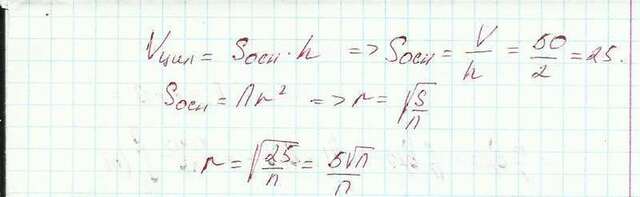 Vцил = Sосн · h => Sосн = V/h = 50/2 = 25.
Sосн = πr² => r = √(S/π)
r = √(25/π) = 5√π/π